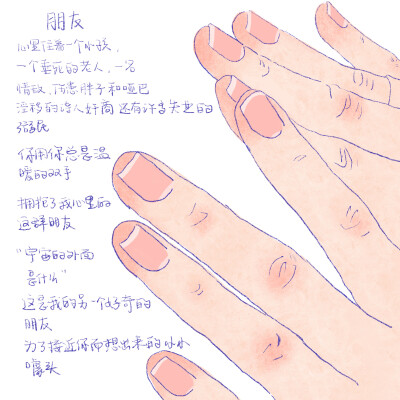 朋友
心里住着一个小孩，
一个垂死的老人，一名
情敌，可恶胖子和哑巴
流移的诗人奸商还有许多失业的
弱民
你用你总是温
暖的双手
拥抱了我心里的
这群朋友
“宇宙的外面
是什么”
这是我的另一个好奇的
朋友
为了接近你而想出来的小小
噱头